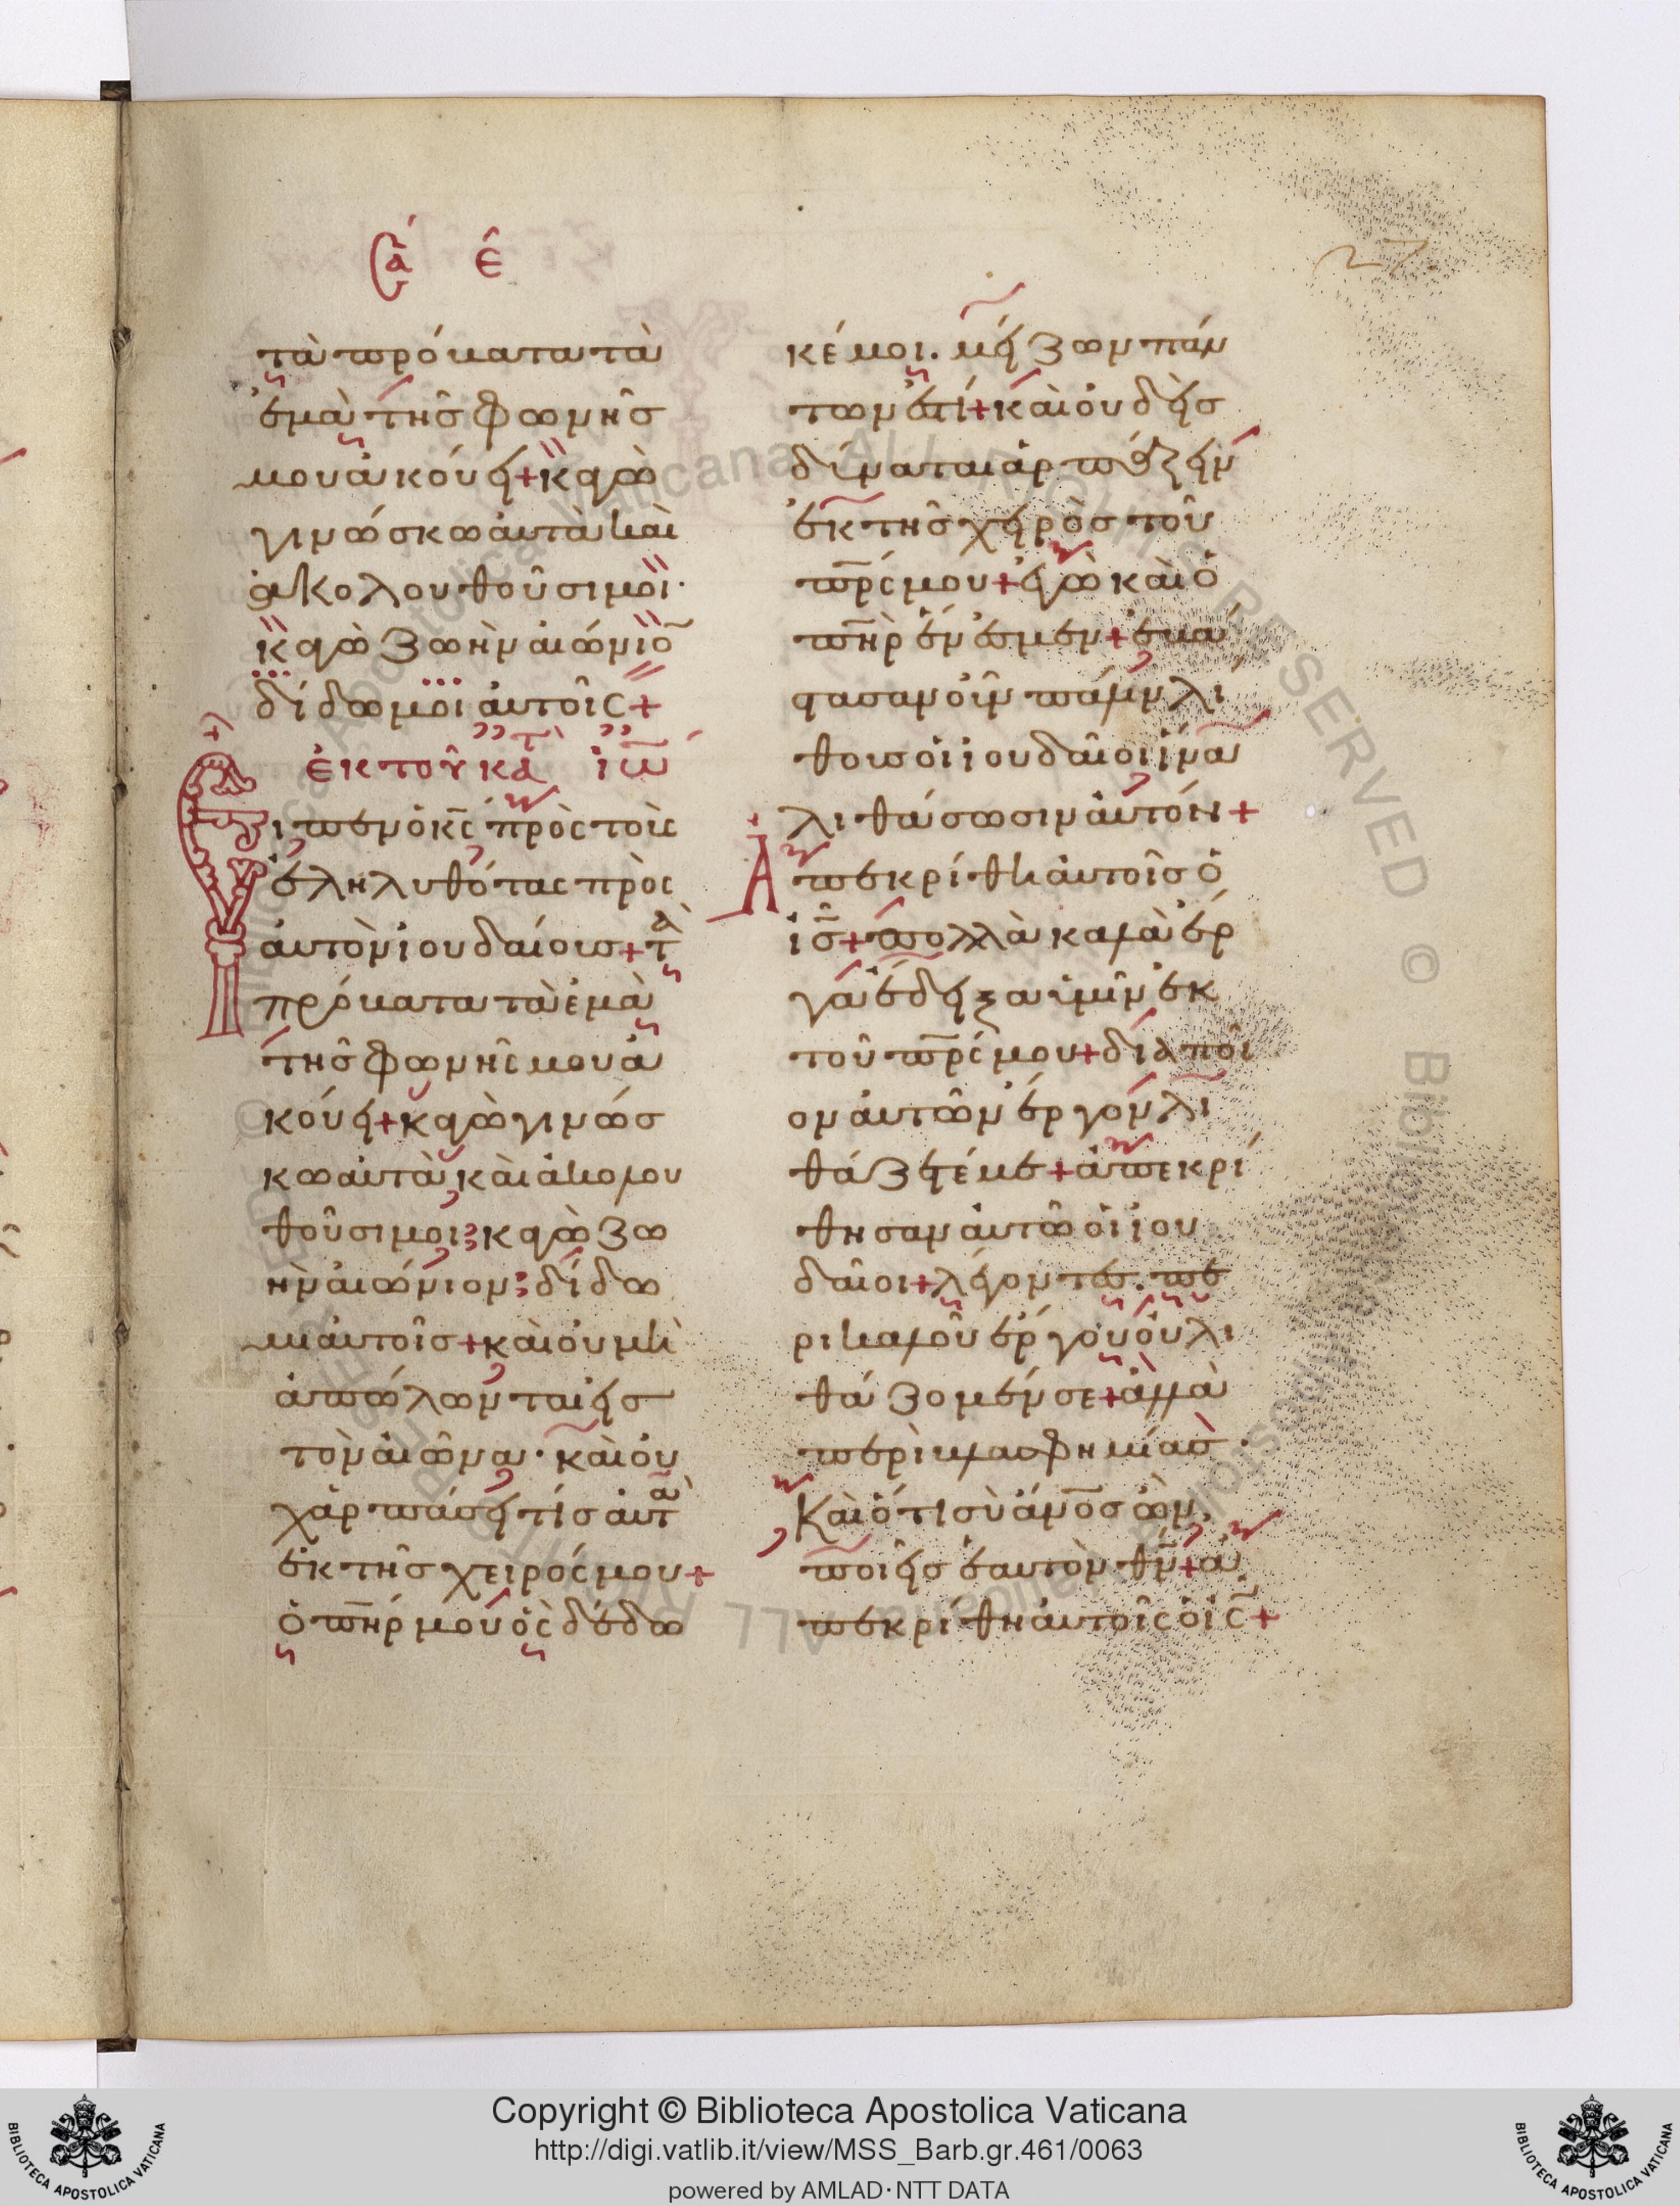 Σα ε
27
τὰ πρόβατα τὰ
ἐμὰ τῆς φωνῆς
μου ἀκούει + κἀγὼ
γινώσκω αὐτὰ καὶ
ἀκολουθοῦσι μοι·
κἀγὼ ζωὴν αἰώνιο̅
δίδωμοι αὐτοῖς +
ἐκ τοῦ κατὰ ἰω
Ειπεν ὁ κ̅ς πρὸς τοὺς
ἐληλυθότας πρὸς
αὐτὸν ἰουδαίους + τὰ
πρόβατα τὰ ἐμὰ
τῆς φωνῆς μου ἀ
κούει + κἀγὼ γινώσ
κω αὐτὰ καὶ ἀκολου
θοῦσι μοι; κἀγὼ ζω
ὴν αἰώνιον; δίδω
μι αὐτοῖς + καὶ οὐ μὴ
ἀπώλωνται εἰς
τὸν αἰῶνα· καὶ οὐ
χ ἁρπάσει τίς αὐτὰ
ἐκ τῆς χειρός μου +
ὁ π̅η̅ρ μου ὃς δέδω
κέ μοι. μείζων πάν
των ἐστί + καὶ οὐδεὶς
δύναται ἁρπάζειν
ἐκ τῆς χειρὸς τοῦ
π̅ρ̅ς μου + ἐγὼ καὶ ὁ
π̅η̅ρ ἕν ἐσμεν + ἐβά
στασαν οὖν πάλιν λί
θους οἱ ἰουδαῖοι ἵνα
λιθάσωσιν αὐτόν +
Ἀπεκρίθη αὐτοῖς ὁ
ι̅ς + πολλὰ καλὰ ἔρ
γα ἔδειξα ὑμῖν ἐκ
τοῦ π̅ρ̅ς μου + διὰ ποῖ
ον αὐτῶν ἔργον λι
θάζετέ με + ἀπεκρί
θησαν αὐτῶ οἱ ἰου
δαῖοι + λέγοντες. πε
ρὶ καλοῦ ἔργου οὐ λι
θάζομέν σε + ἀλλὰ
περὶ βλασφημίας·
Καὶ ὅτι σὺ ἄν̅ο̅ς ὢν,
ποιεῖς ἑαυτὸν θ̅ν + ἀ
πεκρίθη αὐτοῖς ὁ ι̅ς +
Copyright © Biblioteca Apostolica Vaticana
http://digi.vatlib.it/view/MSS_Barb.gr.461/0063
powered by AMLAD·NTT DATA
BIBLIOTECA APOSTOLICA VATICANA
BIBLIOTECA APOSTOLICA VATICANA